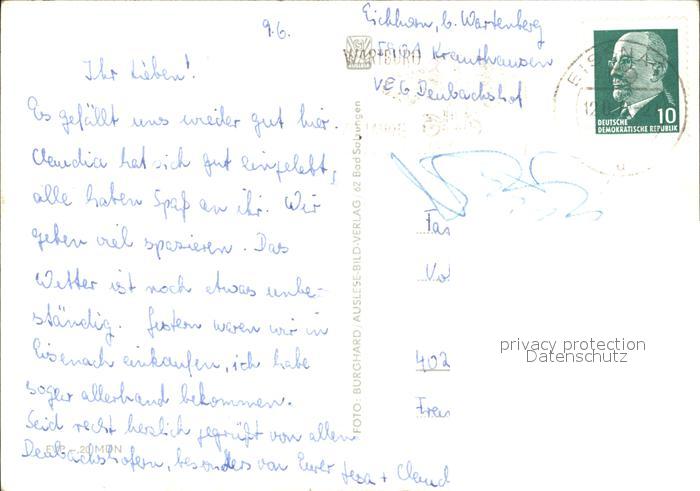 9.6.
Ihr Lieben!
Es gefällt uns wieder gut hier.
Claudia hat sich gut eingelebt,
alle haben Spaß an ihr. Wir
gehen viel spazieren. Das
Wetter ist noch etwas unbe-
ständig. Gestern waren wir in
Eisenach einkaufen, ich habe
sogar allerhand bekommen.
Seid recht herzlich gegrüßt von allen
Deubachshofern, besonders von Eurer
+ Claud
EVP –.20 MDN
FOTO: BURGHARD / AUSLESE-BILD-VERLAG · 62 Bad Salzungen
Eichhorn, b. Wartenberg
Krauthausen
VEG Deubachshof
WARTBURG
DEUTSCHE
DEMOKRATISCHE REPUBLIK
10
Vol
402
privacy protection
Datenschutz